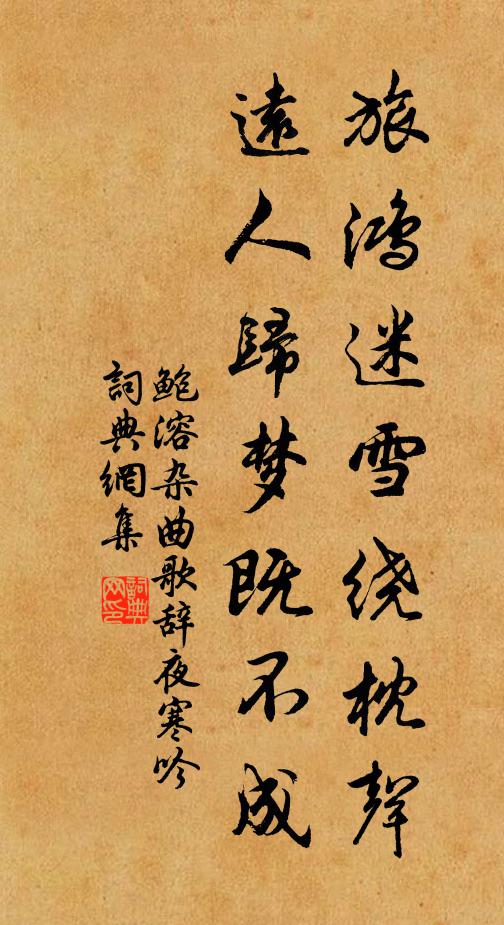 旅鸿迷雪绕枕聲
遠人歸梦既不成
鲍溶杂曲歌辞夜寒吟
詞典網集
詞典网印